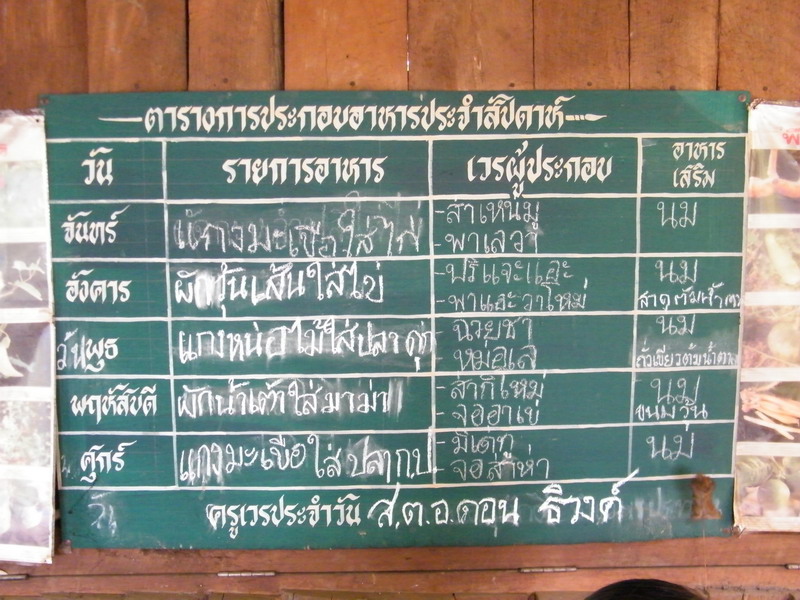 ตารางการประกอบอาหารประจำสัปดาห์
วัน รายการอาหาร เวรผู้ประกอบ อาหารเสริม
จันทร์ แกงมะเขือใส่ไก่ - สาเหน่มู่ นม
- พาเลวา
อังคาร ผัดวุ้นเส้นใส่ไข่ - ปริแจะแฮะ นม
- พาแฮะวาใหม่ สาคูต้มน้ำ
วันพุธ แกงหน่อไม้ใส่ปลาดุก - ฉวยชา นม
- หมอเล ถั่วเขียวต้มน้ำตาล
พฤหัสบดี ผัดน้ำเต้าใส่มาม่า - สากีใหม่ นม
- จออาเข่ ขนมวุ้น
ศุกร์ แกงมะเขือใส่ปลาก.ป - มิเดทู นม
- จอสาห่า
ครูเวรประจำวัน ส.ต.อ.ดอน ธิวงค์